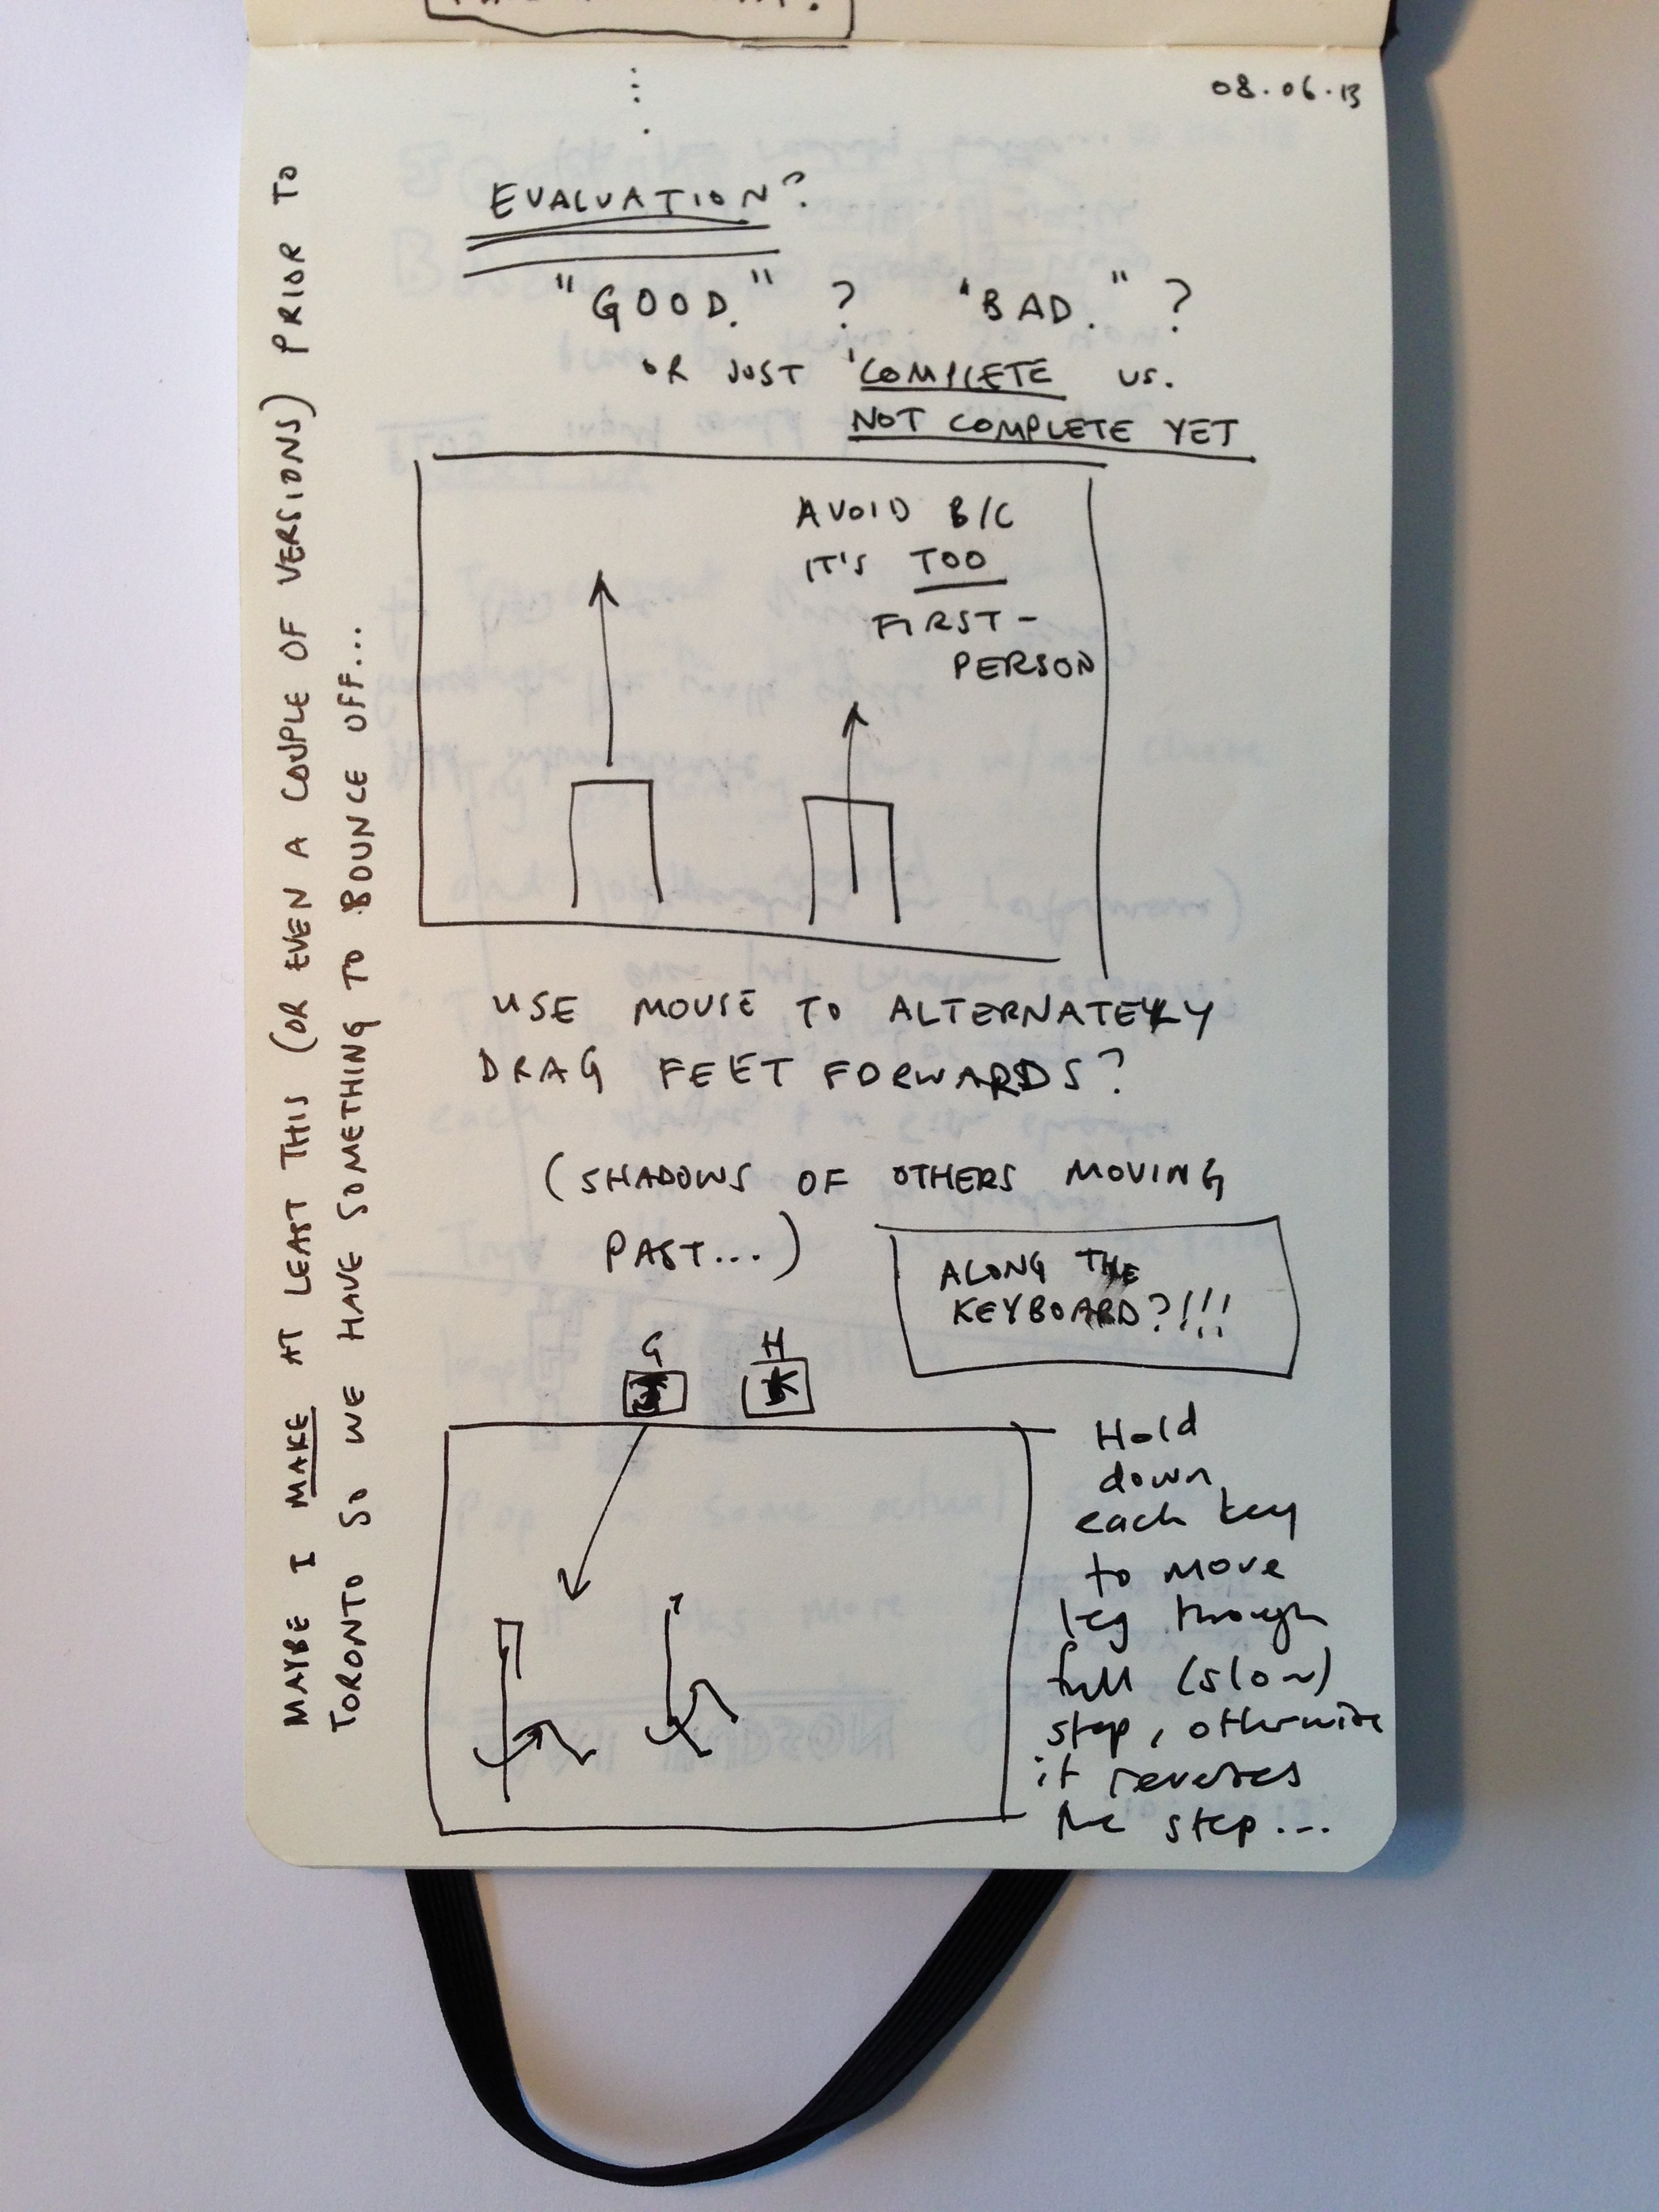 08.06.13
EVALUATION?
"GOOD." ? "BAD." ?
OR JUST 'COMPLETE VS.
NOT COMPLETE YET
AVOID B/C
IT'S TOO
FIRST-
PERSON
USE MOUSE TO ALTERNATELY
DRAG FEET FORWARDS?
(SHADOWS OF OTHERS MOVING
PAST...)
ALONG THE
KEYBOARD?!!!
G H
Hold
down
each key
to move
leg through
full (slow)
step, otherwise
it reverses
the step...
MAYBE I MAKE AT LEAST THIS (OR EVEN A COUPLE OF VERSIONS) PRIOR TO
TORONTO SO WE HAVE SOMETHING TO BOUNCE OFF...